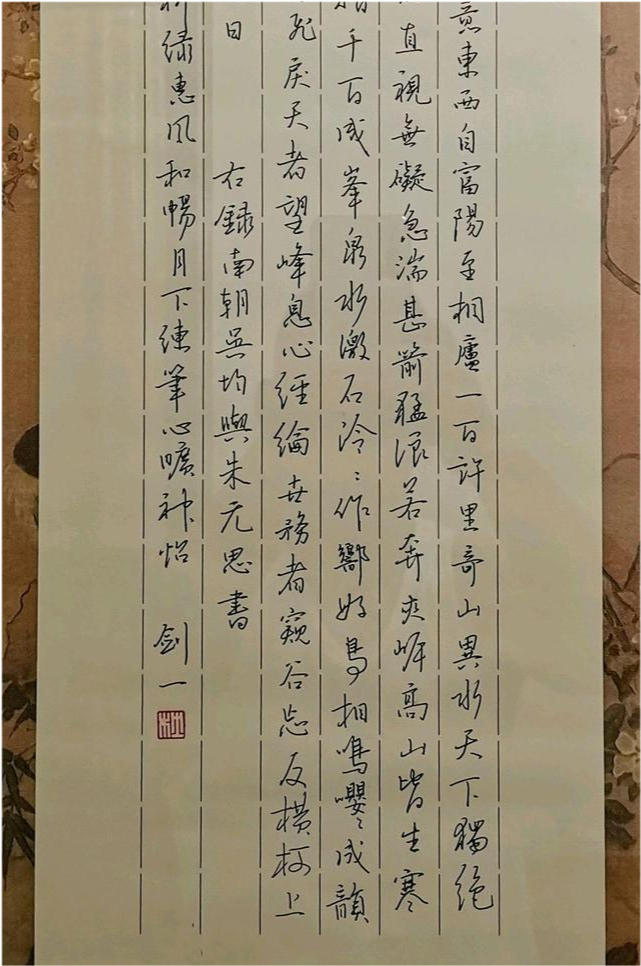 意東西自富陽至桐廬一百許里奇山異水天下獨絕
直視無礙急湍甚箭猛浪若奔夾岸高山皆生寒
千百成峯泉水激石泠〻作響好鳥相鳴嚶〻成韻
戾天者望峰息心經綸世務者窺谷忘反橫柯上
日
右録南朝吳均與朱元思書
緑惠风和暢月下練筆心曠神怡 剑一